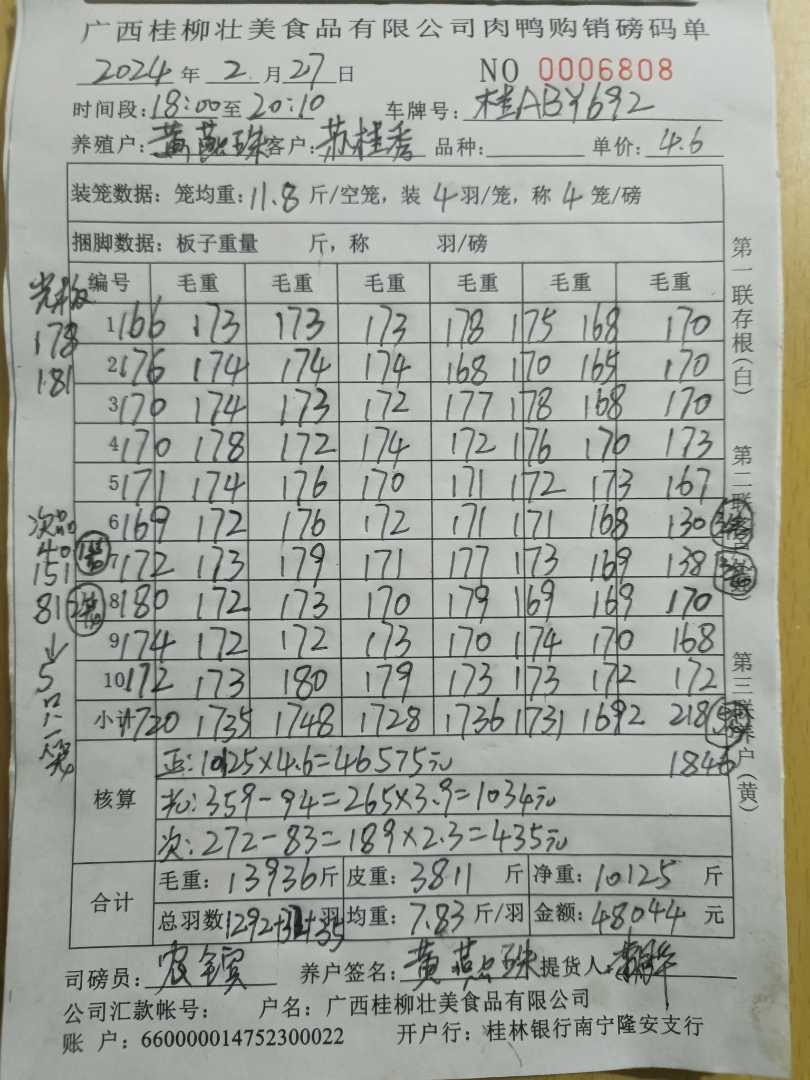 广西桂柳壮美食品有限公司肉鸭购销磅码单
2024年2月27日 NO 0006808
时间段:18:00至20:10 车牌号:桂ABY692
养殖户:黄燕珠 客户:苏桂秀 品种: 单价:4.6
装笼数据:笼均重:11.8斤/空笼,装4羽/笼,称4笼/磅
捆脚数据:板子重量 斤,称 羽/磅
编号 毛重 毛重 毛重 毛重 毛重 毛重
1 166 173 173 173 178 175 168 170
2 176 174 174 174 168 170 165 170
3 170 174 173 172 177 178 168 170
4 170 178 172 174 172 176 170 173
5 171 174 176 170 171 172 173 167
6 169 172 176 172 171 171 168 130
7 172 173 179 171 177 173 169 138
8 180 172 173 170 179 169 169 170
9 174 172 172 173 170 174 170 168
10 172 173 180 179 173 173 172 172
小计 1720 1735 1748 1728 1736 1731 1692 218
1846
核算
正:10125×4.6=46575元
光:359-94=265×3.9=1034元
次:272-83=189×2.3=435元
合计
毛重:13936斤 皮重:3811斤 净重:10125斤
总羽数1292+32+35羽 均重:7.83斤/羽 金额:48044元
司磅员: 养户签名:黄燕珠 提货人:
公司汇款帐号: 户名:广西桂柳壮美食品有限公司
账 户:660000014752300022 开户行:桂林银行南宁隆安支行
光板
178
181
次品
40
151
81
↓
5
只
一
笼
第一联存根(白)
第二联
第三联养户(黄)